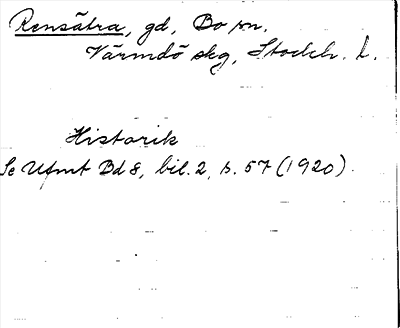 Rensätra, gd, Bo sn.
Värmdö skg, Stockh. l.
Historik
Se Ufmt Bd 8, bil. 2, s. 57 (1920).